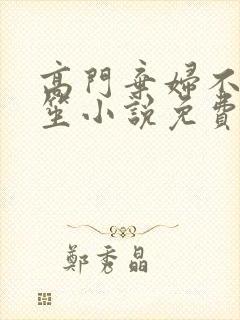 高門棄婦不
笙小說免費
鄭秀晶